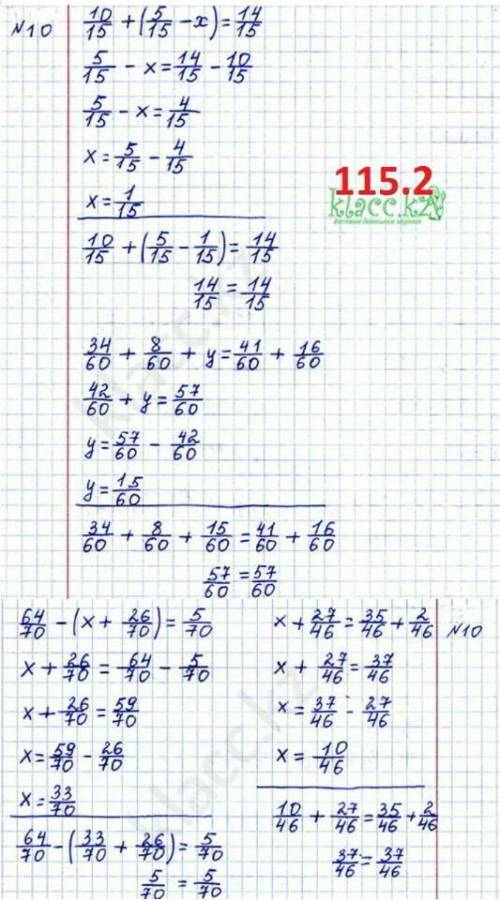 №10
10/15 + (5/15 - x) = 14/15
5/15 - x = 14/15 - 10/15
5/15 - x = 4/15
x = 5/15 - 4/15
x = 1/15
115.2
klacc.kz
готовые домашние задания
10/15 + (5/15 - 1/15) = 14/15
14/15 = 14/15
34/60 + 8/60 + y = 41/60 + 16/60
42/60 + y = 57/60
y = 57/60 - 42/60
y = 15/60
34/60 + 8/60 + 15/60 = 41/60 + 16/60
57/60 = 57/60
64/70 - (x + 26/70) = 5/70
x + 26/70 = 64/70 - 5/70
x + 26/70 = 59/70
x = 59/70 - 26/70
x = 33/70
64/70 - (33/70 + 26/70) = 5/70
5/70 = 5/70
x + 27/46 = 35/46 + 2/46
№10
x + 27/46 = 37/46
x = 37/46 - 27/46
x = 10/46
10/46 + 27/46 = 35/46 + 2/46
37/46 = 37/46
klacc.kz
klacc.kz